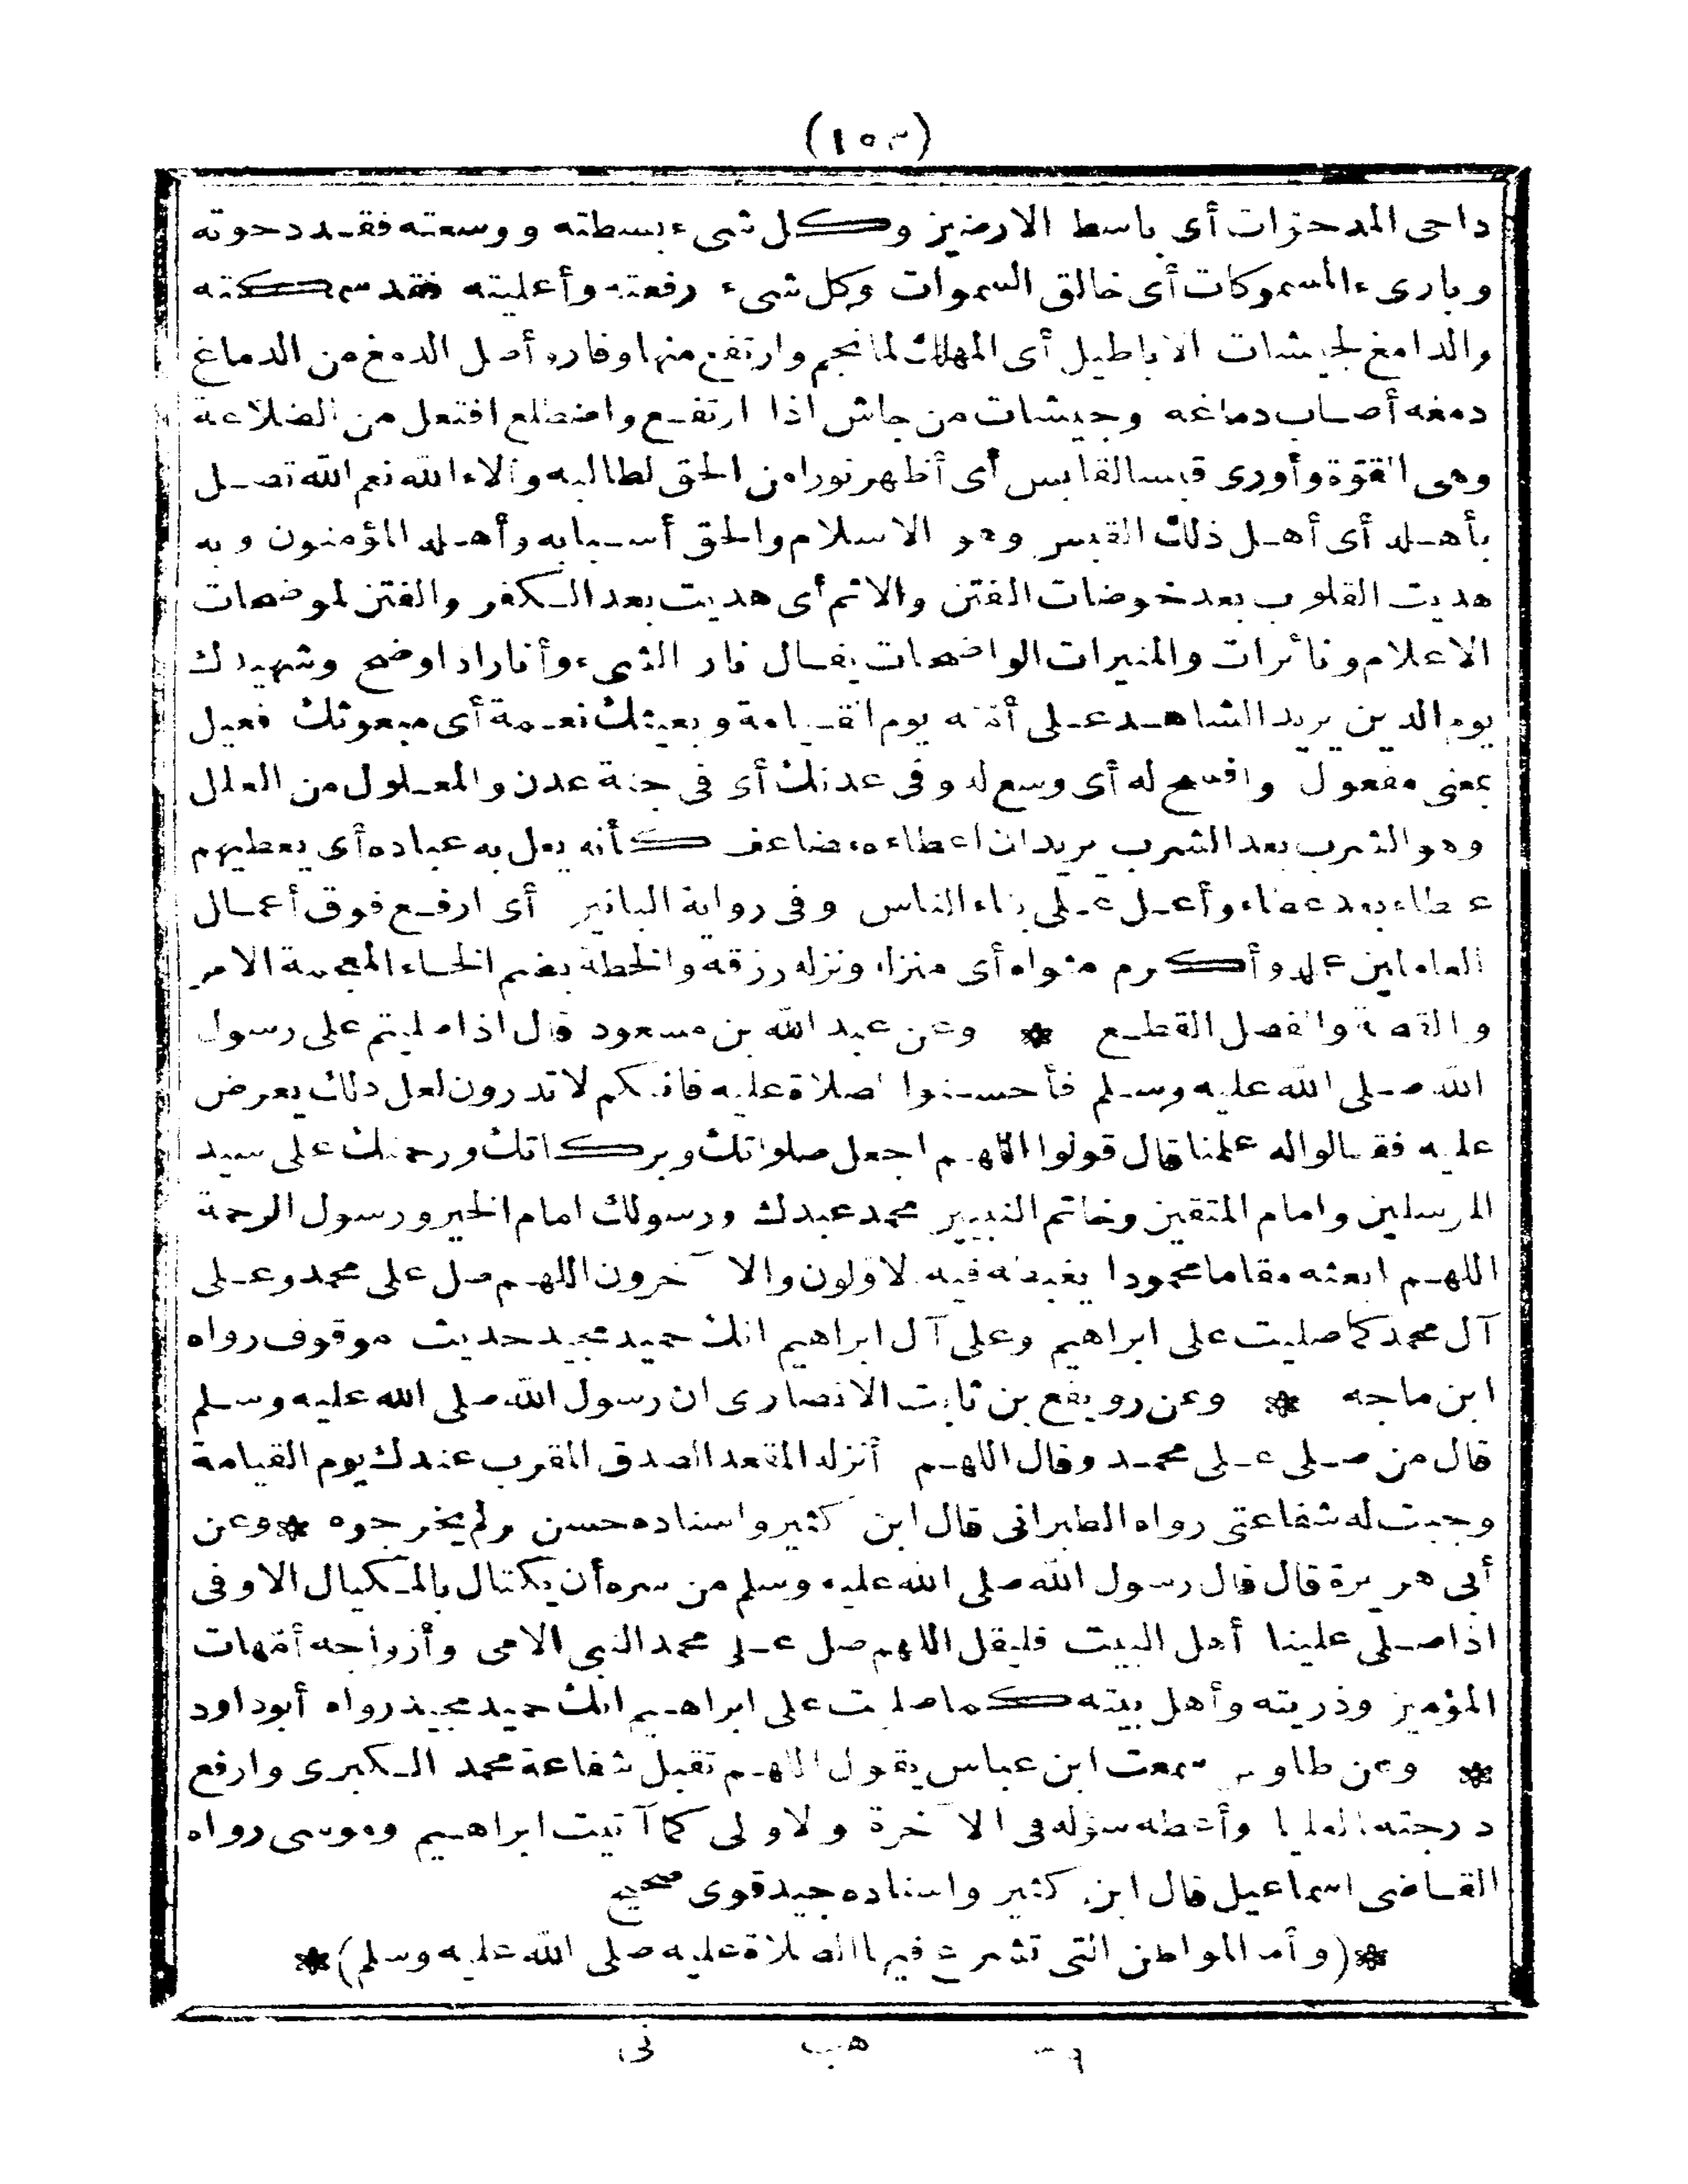 (١٥٣)
داحى المدحوات أى باسط الارضين وكل شىء بسطته ووسعته فقد دحوته
وبارىء المسموكات أى خالق السموات وكل شىء رفعته وأعليته فقد سمكته
والدامغ لجيشات الاباطيل أى المهلك لما نجم وارتفع منها وفار وأصل الدمغ من الدماغ
دمغه أصاب دماغه وجيشات من جاش اذا ارتفع واضطلع افتعل من الضلاعة
وهى القوّة وأورى قبسا لقابس أى أظهر نورا من الحق لطالبه وآلاء الله نعم الله تصل
بأهله أى أهل ذلك القبس وهو الاسلام والحق أسبابه وأهله المؤمنون وبه
هديت القلوب بعد خوضات الفتن والاثم أى هديت بعد الكفر والفتن لموضحات
الاعلام ونائرات والمنيرات الواضحات يقال نار الشىء وأنار اذا وضح وشهيدك
يوم الدين يريد الشاهد على أمّته يوم القيامة وبعيثك نعمة أى مبعوثك فعيل
بمعنى مفعول وافسح له أى وسع له وفى عدنك أى فى جنة عدن والمعلول من العلل
وهو الشرب بعد الشرب يريد ان اعطاءه مضاعف كأنه يعل به عباده أى يعطيهم
عطاء بعد عطاء وأعل على بناء الناس وفى رواية البانين أى ارفع فوق أعمال
العاملين عمله وأكرم مثواه أى منزله ونزله رزقه والخطة بضم الخاء المعجمة الامر
والقصة والفصل القطع * وعن عبد الله بن مسعود قال اذا صليتم على رسول
الله صلى الله عليه وسلم فأحسنوا الصلاة عليه فانكم لا تدرون لعل ذلك يعرض
عليه فقالوا له علمنا قال قولوا اللهم اجعل صلواتك وبركاتك ورحمتك على سيد
المرسلين وامام المتقين وخاتم النبيين محمد عبدك ورسولك امام الخير ورسول الرحمة
اللهم ابعثه مقاما محمودا يغبطه فيه الاوّلون والآخرون اللهم صل على محمد وعلى
آل محمد كما صليت على ابراهيم وعلى آل ابراهيم انك حميد مجيد حديث موقوف رواه
ابن ماجه * وعن رويفع بن ثابت الانصارى ان رسول الله صلى الله عليه وسلم
قال من صلى على محمد وقال اللهم أنزله المقعد الصدق المقرب عندك يوم القيامة
وجبت له شفاعتى رواه الطبرانى قال ابن كثير واسناده حسن ولم يخرجوه * وعن
أبى هريرة قال قال رسول الله صلى الله عليه وسلم من سره أن يكتال بالمكيال الاوفى
اذا صلى علينا أهل البيت فليقل اللهم صل على محمد النبى الامى وأزواجه أمّهات
المؤمنين وذريته وأهل بيته كما صليت على ابراهيم انك حميد مجيد رواه أبو داود
* وعن طاوس سمعت ابن عباس يقول اللهم تقبل شفاعة محمد الكبرى وارفع
درجته العليا وأعطه سؤله فى الآخرة والاولى كما آتيت ابراهيم وموسى رواه
القاضى اسماعيل قال ابن كثير واسناده جيد قوى صحيح
*(وأما المواطن التى تشرع فيها الصلاة عليه صلى الله عليه وسلم)*
هب نى